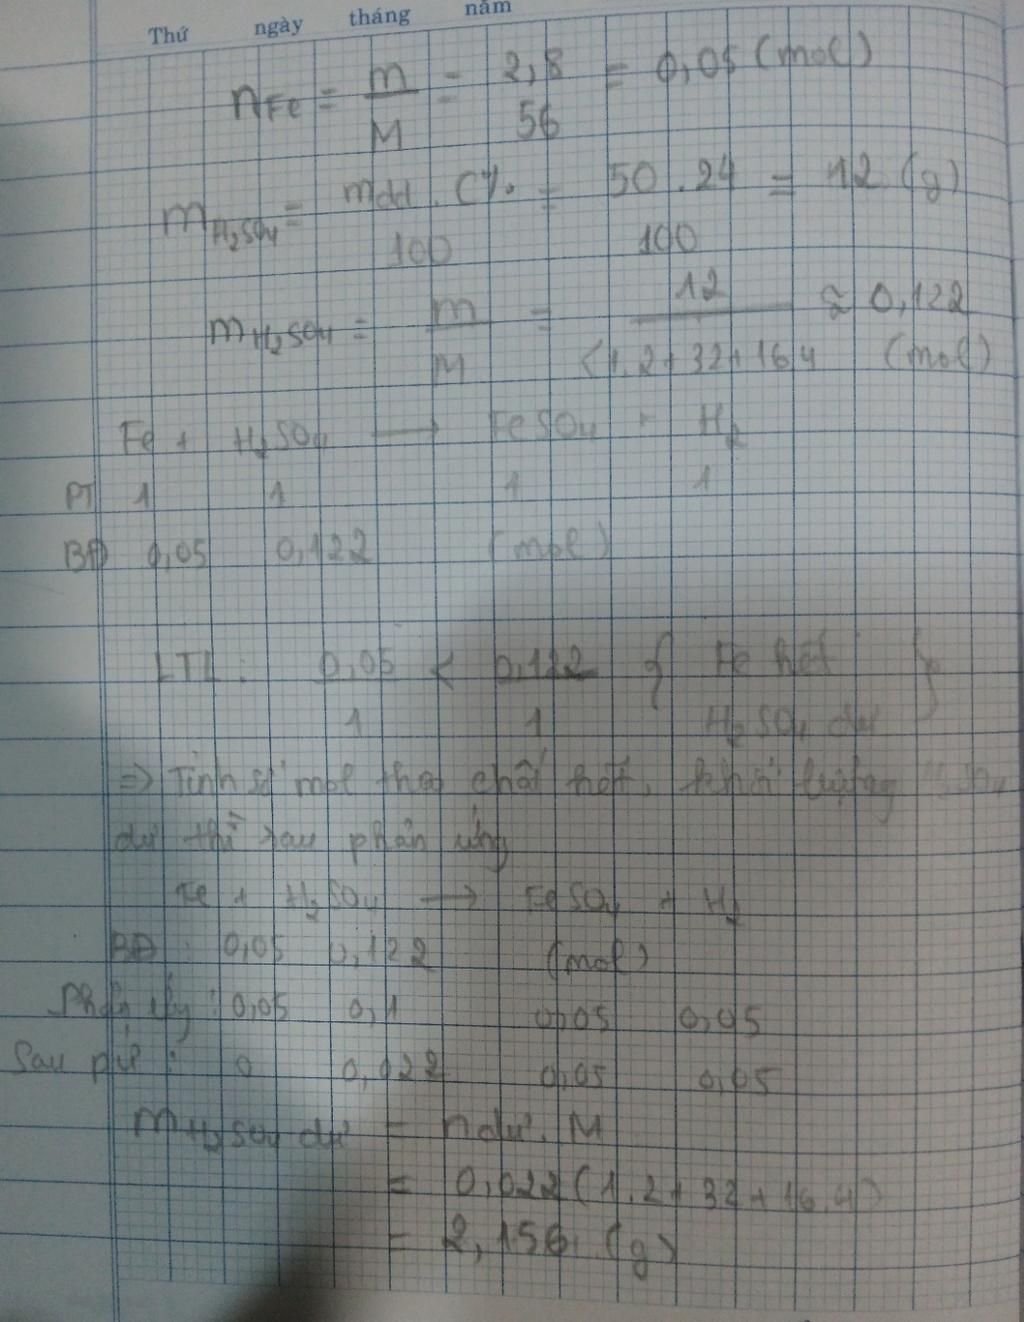 Thứ ngày tháng năm
nFe = m/M = 2,8/56 = 0,05 (mol)
mH₂SO₄ = mdd . C%/100 = 50 . 24/100 = 12 (g)
mH₂SO₄ = m/M = 12/(1.2+32+16.4 ≈ 0,122 (mol)
Fe + H₂SO₄ → FeSO₄ + H₂
PT 1 1 1 1
BĐ 0,05 0,122 (mol)
LTL : 0,05/1 < 0,122/1 { Fe hết }
H₂SO₄ dư
=> Tính số mol theo chất hết, khối lượng
dư thì sau phản ứng
Fe + H₂SO₄ → FeSO₄ + H₂
BĐ : 0,05 0,122 (mol)
Phản ứng : 0,05 0,1 0,05 0,05
Sau pứ : 0 0,022 0,05 0,05
mH₂SO₄ dư = ndư . M
= 0,022 (1.2+32+16.4)
= 2,156 (g)